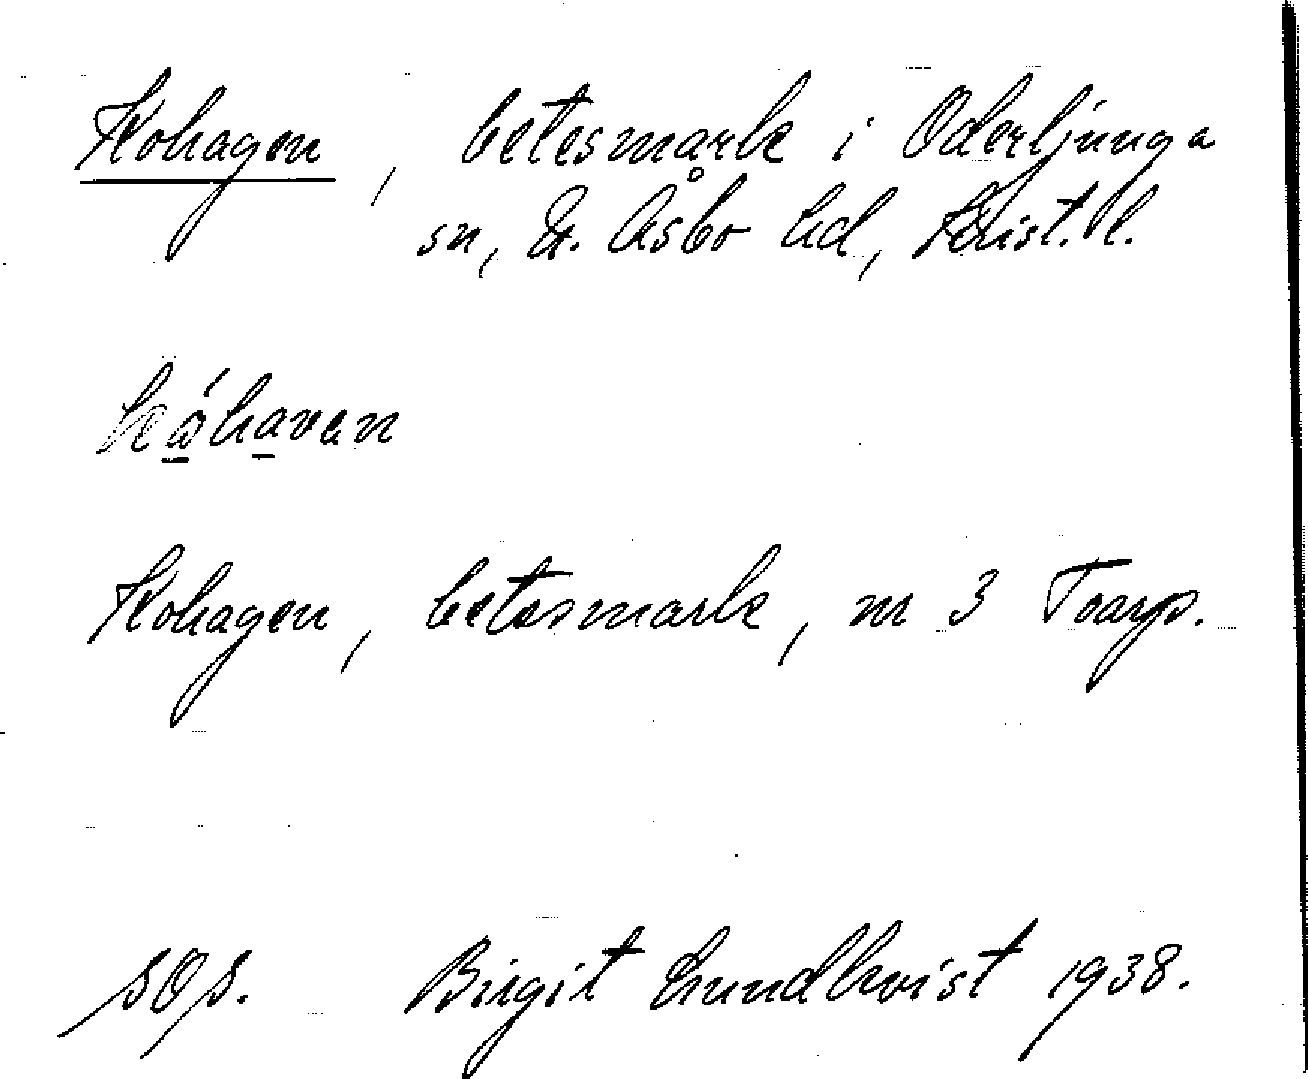 Kohagen, betesmark i Oderljunga
sn, N. Åsbo hd, Krist. l.
kåhaven
Kohagen, betesmark, nr 3 Toarp.
SOS. Birgit Lundkvist 1938.